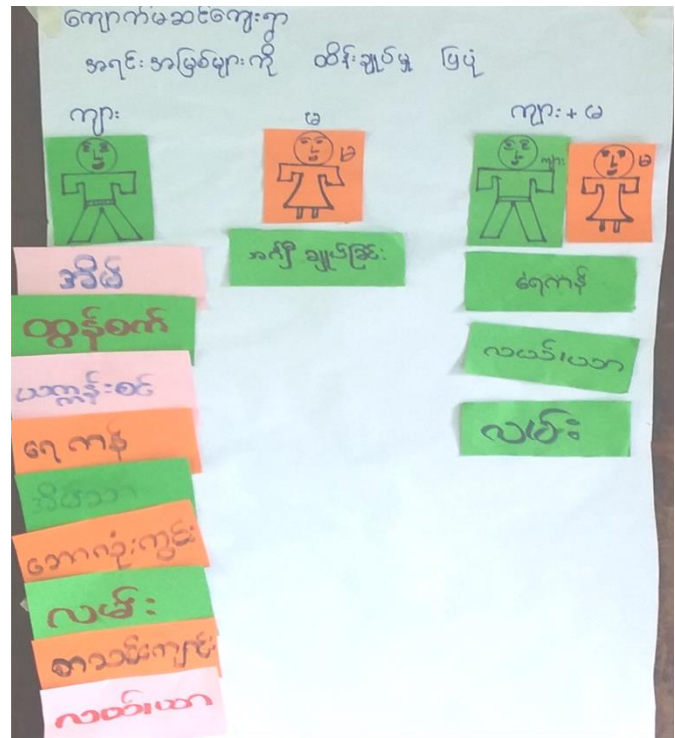 ကျောက်မဆင်ကျေးရွာ
အရင်းအမြစ်များကို ထိန်းချုပ်မှု ပြပုံ
ကျား
မ
ကျား + မ
မ
ကျား
မ
အိမ်
ထွန်စက်
ယက္ကန်းစင်
ရေကန်
အိမ်သာ
ဘောလုံးကွင်း
လမ်း
စာသင်ကျောင်း
လယ်/ယာ
အင်္ကျီ ချုပ်ခြင်း
ရေကန်
လယ်/ယာ
လမ်း